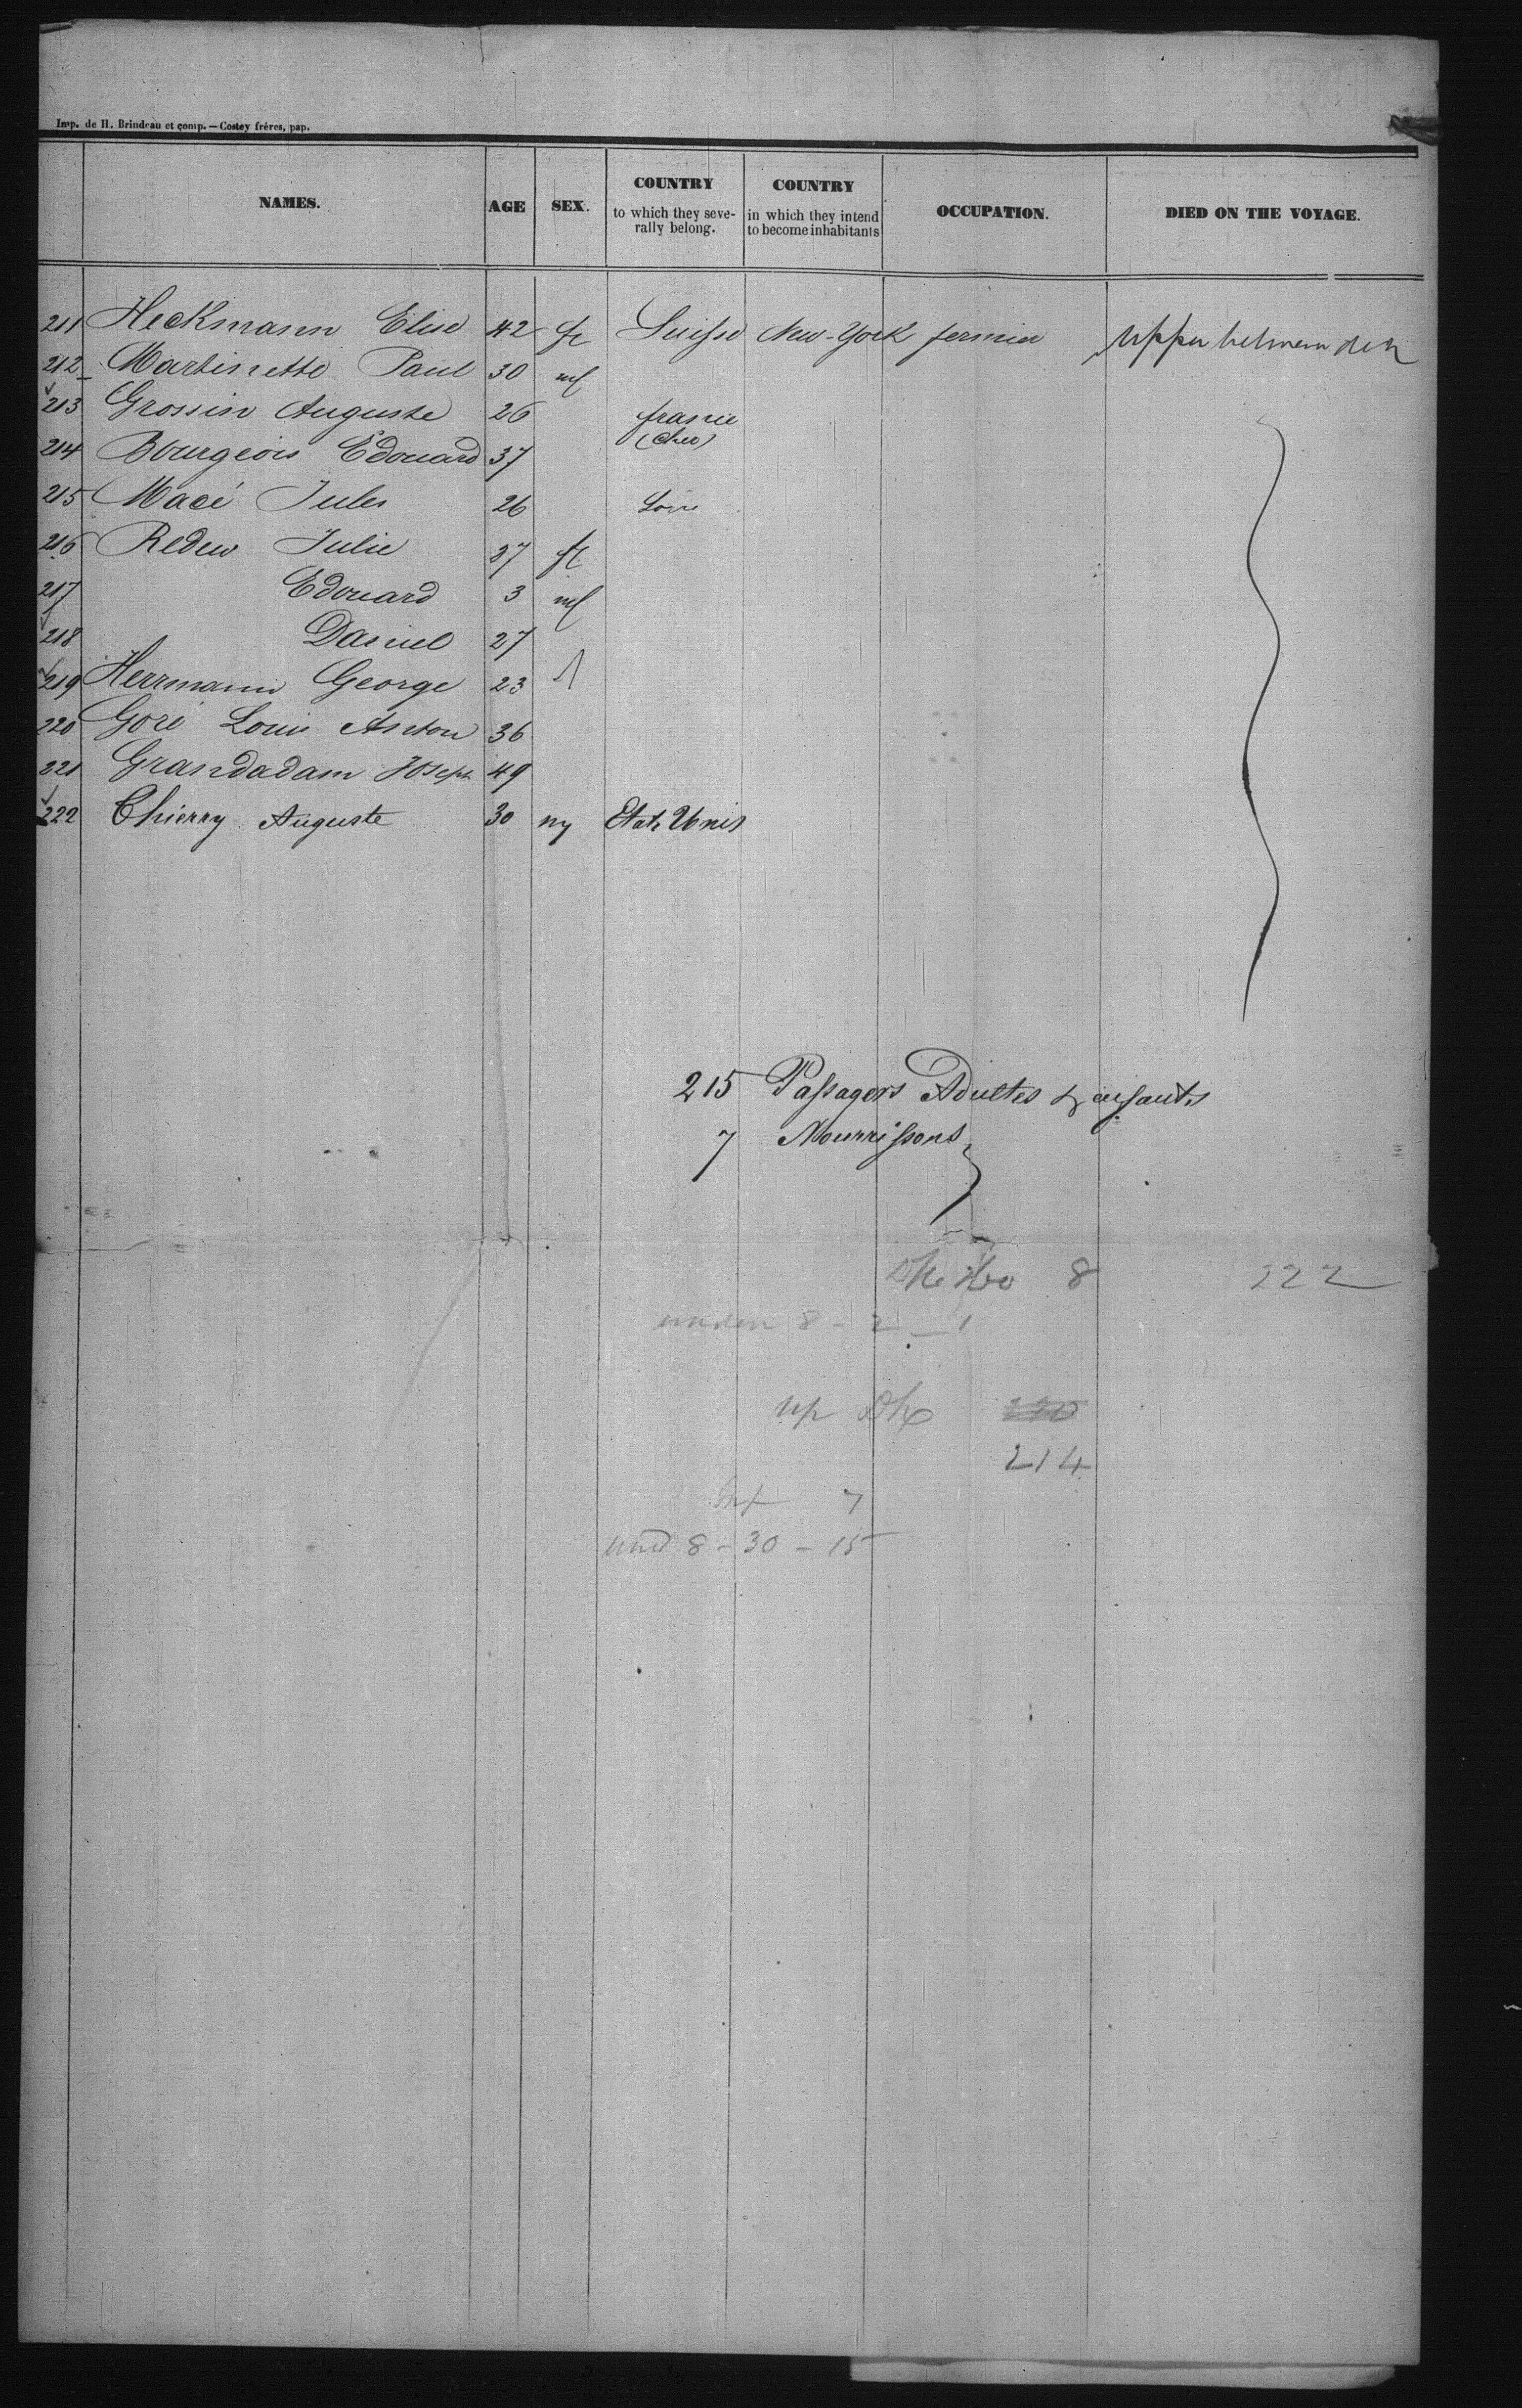 Imp. de H. Brindeau et comp. — Costey frères, pap.
NAMES. AGE SEX. COUNTRY to which they severally belong. COUNTRY in which they intend to become inhabitants OCCUPATION. DIED ON THE VOYAGE.
211 Heckmann Elise 42 fe Suisse New-York fermier Upper between deck
212 Martinette Paul 30 m
213 Grossin Auguste 26 france
(Cher)
214 Bourgeois Edouard 37
215 Macé Jules 26 Loire
216 Julie 37 fe
217 Edouard 3 m
218 Daniel 27
219 Herrmann George 23
220 Goré Louis Anton 36
221 Grandadam Joseph 49
222 Thierry Auguste 30 Etats Unis
215 Passagers Adultes & enfants
7 Nourrissons
8 222
under 8 - 2 - 1
up DK
214
Inf 7
und 8 - 30 - 15